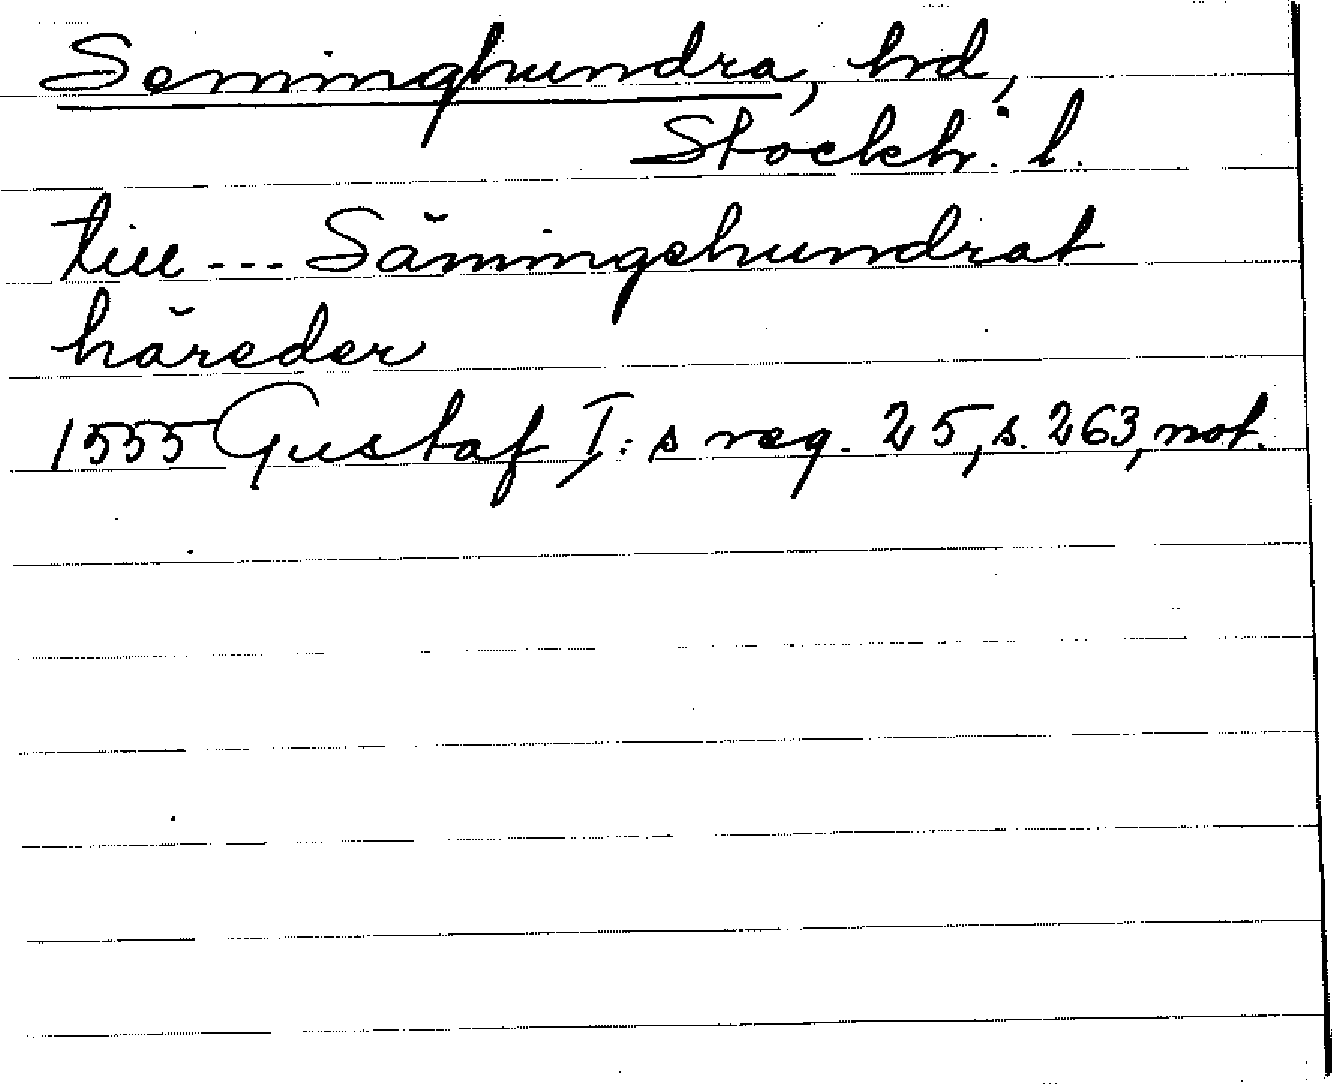 Seminghundra, hrd,
Stockh. l.
till --- Sämingehundrat
häreder
1555 Gustaf I:s reg. 25, s. 263, not.